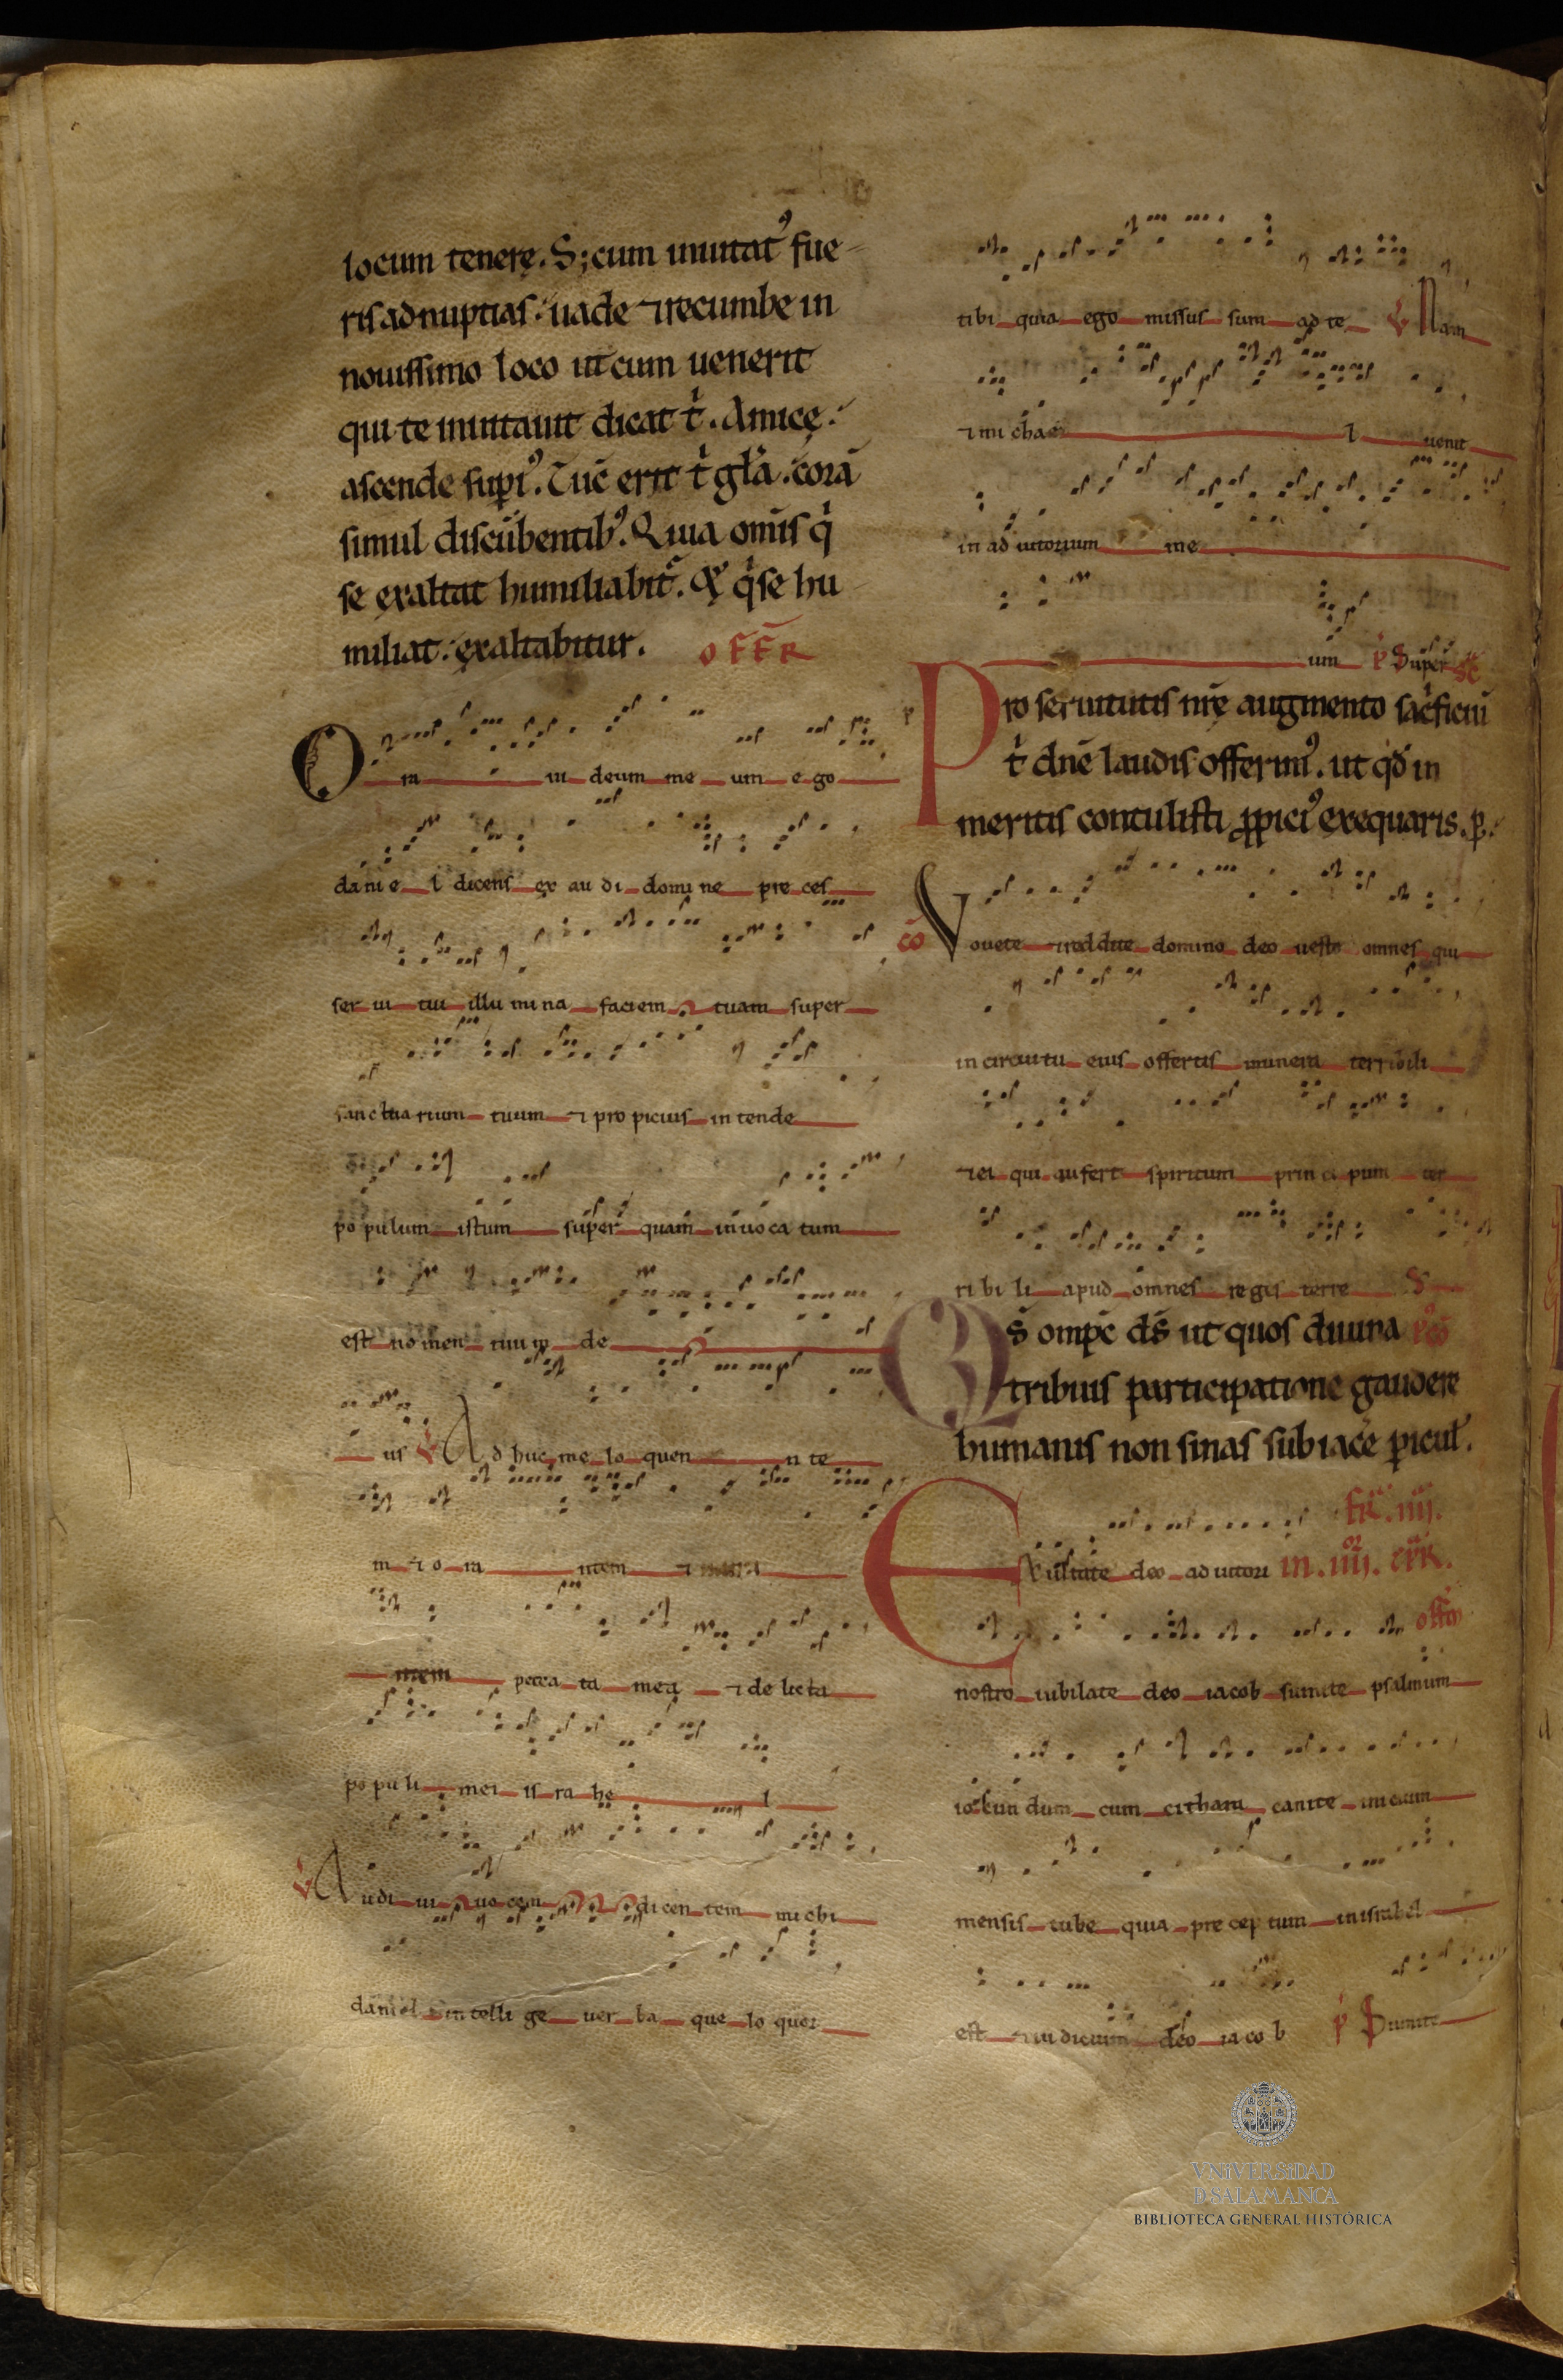 locum tenere. S; cum inuitatꝰ fue
ris ad nuptias: uade ⁊ recumbe in
nouissimo loco ut cum uenerit
qui te inuitauit dicat t̾. Amice:
ascende supiꝰ. Tūc erit t̾ gl̄a. corā
simul discūbentibꝰ. Quia om̄is q̾
se exaltat humiliabit᷑. & q̾ se hu
miliat: exaltabitur. OFFR
O ra ui deum me um ego
da ni e l dicens ex au di domi ne pre ces
ser ui tui illu mi na faciem tuam super
sanctua rium tuum ⁊ pro picius in tende
po pulum istum super quam inuo ca tum
est no men tuum de
us ℣ Ad huc me lo quen n te
m ⁊ o ra ntem ⁊
ntem pecca ta mea ⁊ de licta
po pu li mei is ra he l
℣ Audi ui uo cem dicen tem michi
daniel in telli ge uer ba que lo quor
tibi quia ego missus sum ad te ℣ Nam
⁊ mi cha e l uenit
in ad iutorium me
um p̾ Super sc̄
Pro seruitutis nr̄ę augmento sac̾ficiū
t̾ dn̄e laudis offerimꝰ. ut qd̾ in
meritis contulisti ꝓpiciꝰ exequaris. p.
cō Vouete ⁊ reddite domino deo uesto omnes qui
in circuitu eius offertis munera terribili
⁊ ei qui aufert spiritum prin ci pum ter
ri bi li apud omnes reges terre
Qs̄ omp̄c ds̄ ut quos diuina
tribuis participatione gaudere
humanis non sinas subiacē pericul̾.
FR̄. IIII.
Exultate deo ad iutori IN. IIIIor. CPR̄.
nostro iubilate deo iacob sumite psalmum offm̄
io kun dum cum cithara canite inicium
mensis tube quia pre cep tum in israhel
est ⁊ iudicium deo ia co b p̾ Sumite
VNIVERSIDAD
D SALAMANCA
BIBLIOTECA GENERAL HISTÓRICA